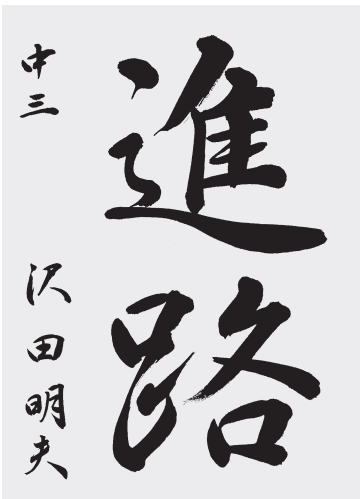 進路
中三 沢田明夫